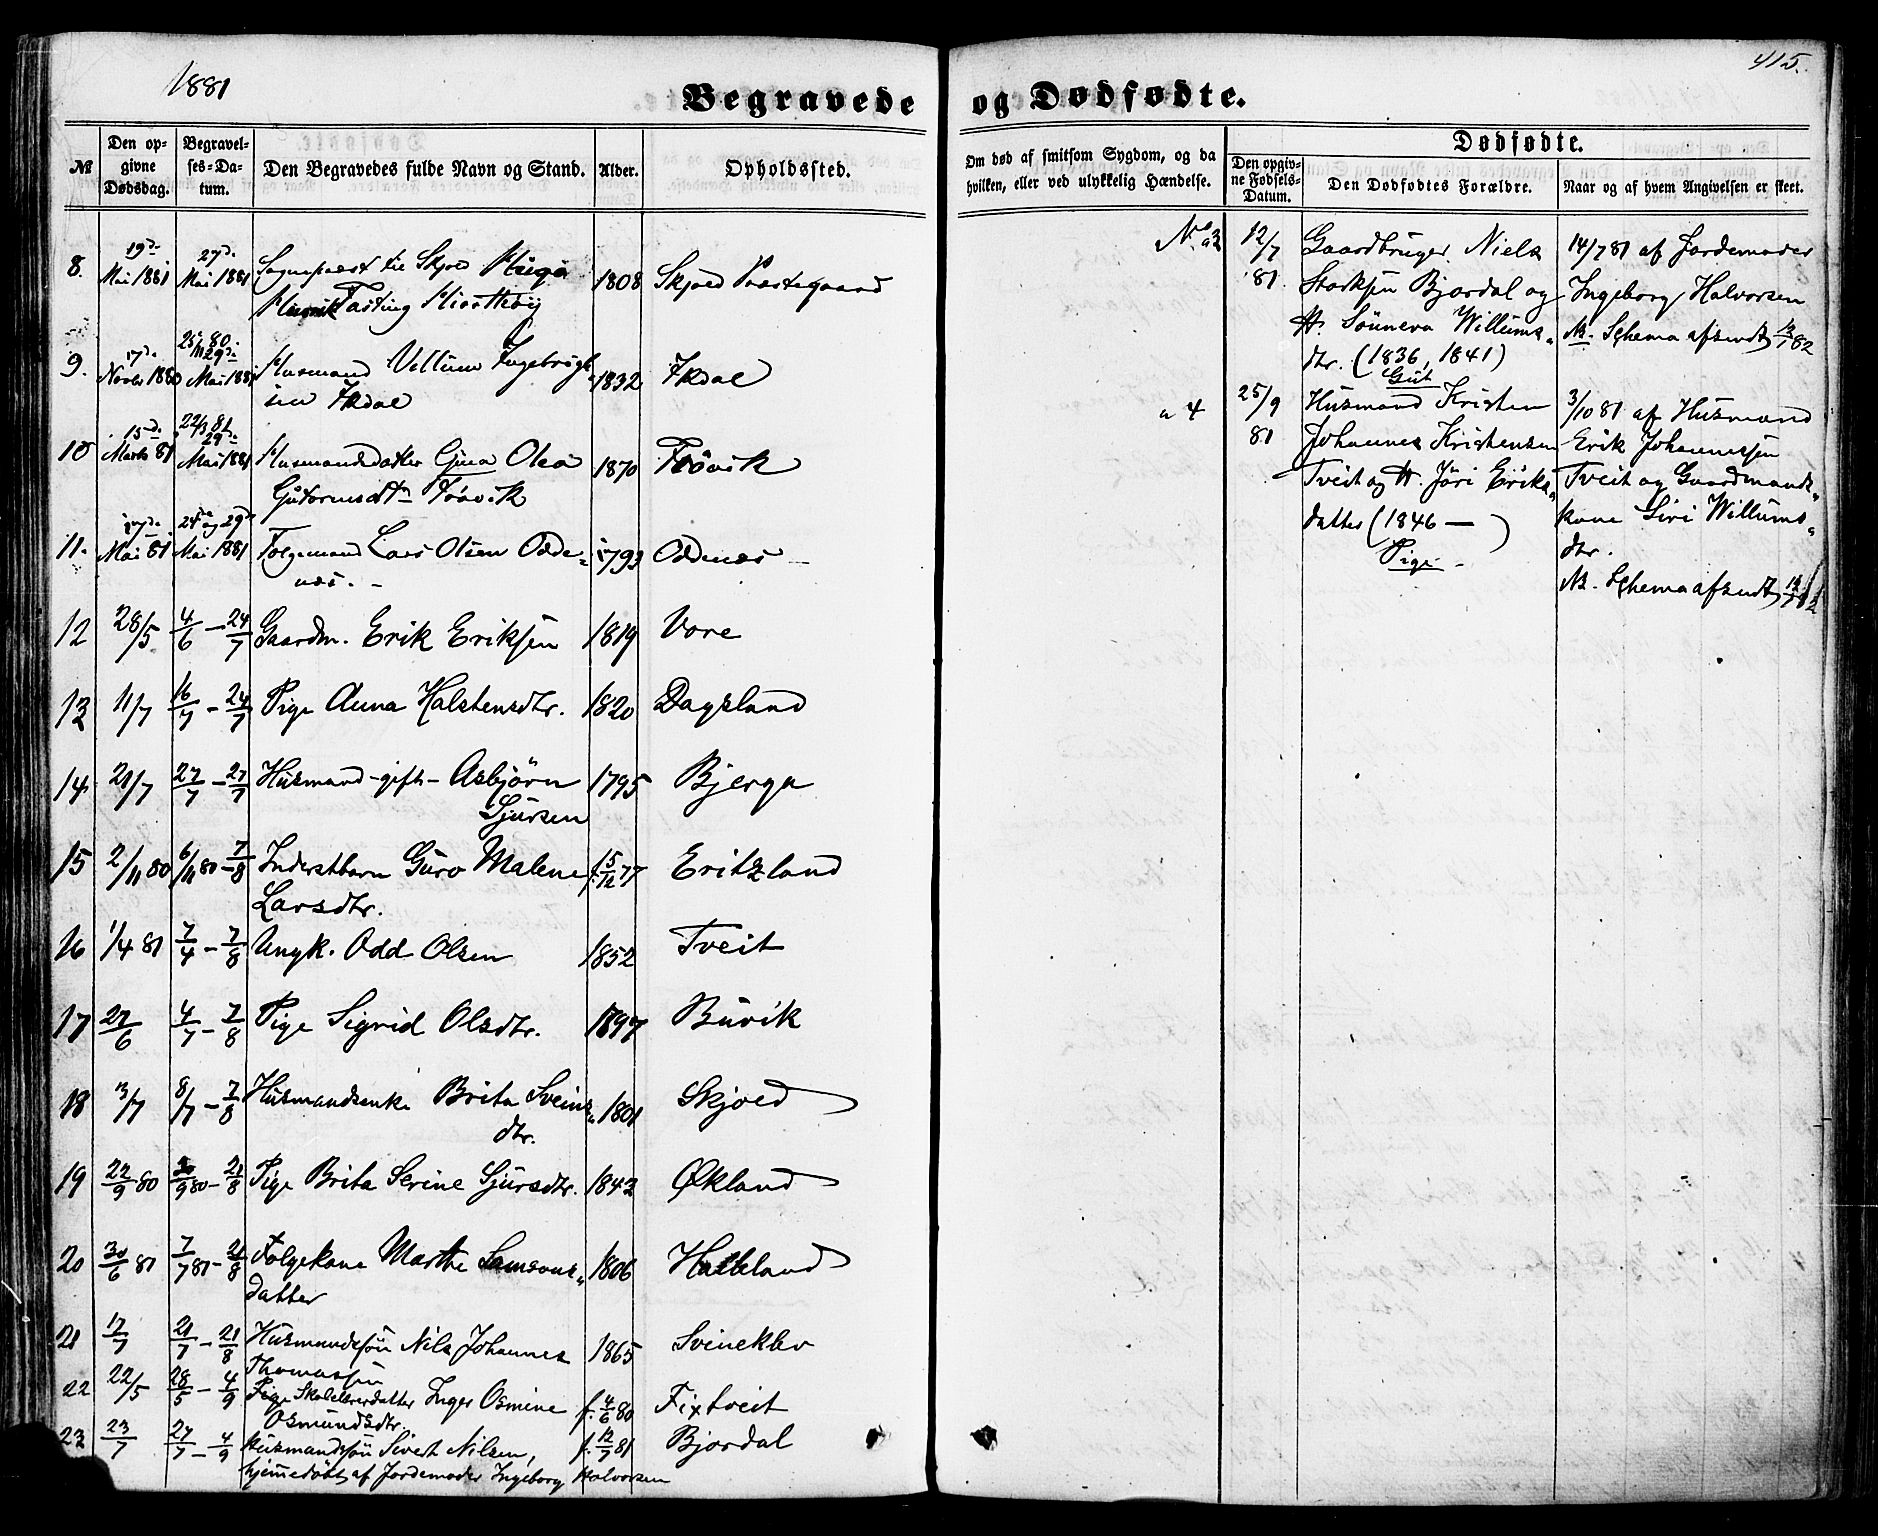 1881
415.
Begravede og Dødfødte.
№
Den op-
givne
Dødsdag.
Begravel-
ses-Da-
tum.
Den Begravedes fulde Navn og Stand.
Alder.
Opholdssted.
Om død af smitsom Sygdom, og da
hvilken, eller ved ulykkelig Hændelse.
Dødfødte.
Den opgiv-
ne Fødsels-
Datum.
Den Dødfødtes Forældre.
Naar og af hvem Angivelsen er skeet.
8. 19de Mai 1881 27de Mai 1881 Sognepræst til Skjold
Fasting 1808 Skjold Præstegaard
9. 17de Novbr 1880 25/11 80. 29de Mai 1881 Husmand Villum Ingebrigt-
sen Ikdal 1832 Ikdal
10 15de Marts 81 22/3 81 29de Mai 1881 Husmandsdatter Gina Olea
Gutormsdtr Frövik 1870 Frövik
11. 17de Mai 81 24de og 29de Mai 1881 Folgemand Lars Olsen Odde-
næs. - 1793 Oddenæs
12 28/5 4/6 - 24/7 Gaardm. Erik Eriksen 1819 Vore
13 11/7 16/7 - 24/7 Pige Anna Halstensdtr. 1820 Dagsland
14 21/7 27/7 - 27/7 Husmand - gift - Asbjörn
Sjursen 1795 Bjerga
15 2/11 80 6/11 80 - 7/8 Inderstbarn Guro Malene
Larsdtr. f. 5/12 77 Eritzland
16 1/4 81 7/4 - 7/8 Ungk. Odd Olsen 1852 Tveit
17 27/6 4/7 - 7/8 Pige Sigrid Olsdtr. 1797 Buvik
18 3/7 8/7 - 7/8 Husmandsenke Brita Sveins-
dtr. 1801 Skjold
19 22/9 80 /9 80 - 21/8 Pige Brita Serine Sjursdtr. 1843 Økland
20 30/6 81 7/7 81 - 21/8 Folgekone Marthe Samsons-
datter 1806 Halleland
21 17/7 21/7 - 21/8 Husmandssön Nils Johannes
Thomassen 1865 Svineklev
22 22/5 28/5 - 4/9 Pige Skolelærerdatter Inger Osmine
Osmundsdtr. f. 4/6 80 Fixtveit
23 23/7 27/7 - 4/9 Husmandssön Sivert Nilsen,
hjemmedöbt af Jordemoder Ingeborg Halvorsen f. 12/7 81 Bjordal
No 3 12/7 81. Gaardbruger Niels
Storksen Bjordal og
H. Sünneva Willums-
dtr. (1836, 1841)
Gut
14/7 81 af Jordemoder
Ingeborg Halvorsen
NB. Schema afsendt 13/1 82
" 4 25/9 81 Husmand Kristen
Johannes Kristensen
Tveit og H. Jöri Eriks-
datter (1846 — )
Pige
3/10 81 af Husmand
Erik Johannessen
Tveit og Gaardmands-
kone Siri Willums-
dtr.
NB. Schema afsendt 13/1 82